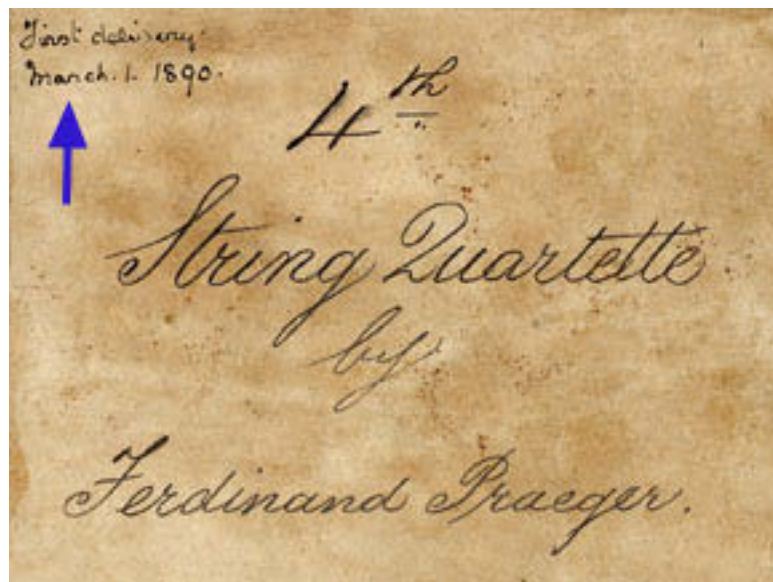 First delivery.
March. 1. 1890.
4th
String Quartette
by
Ferdinand Praeger.